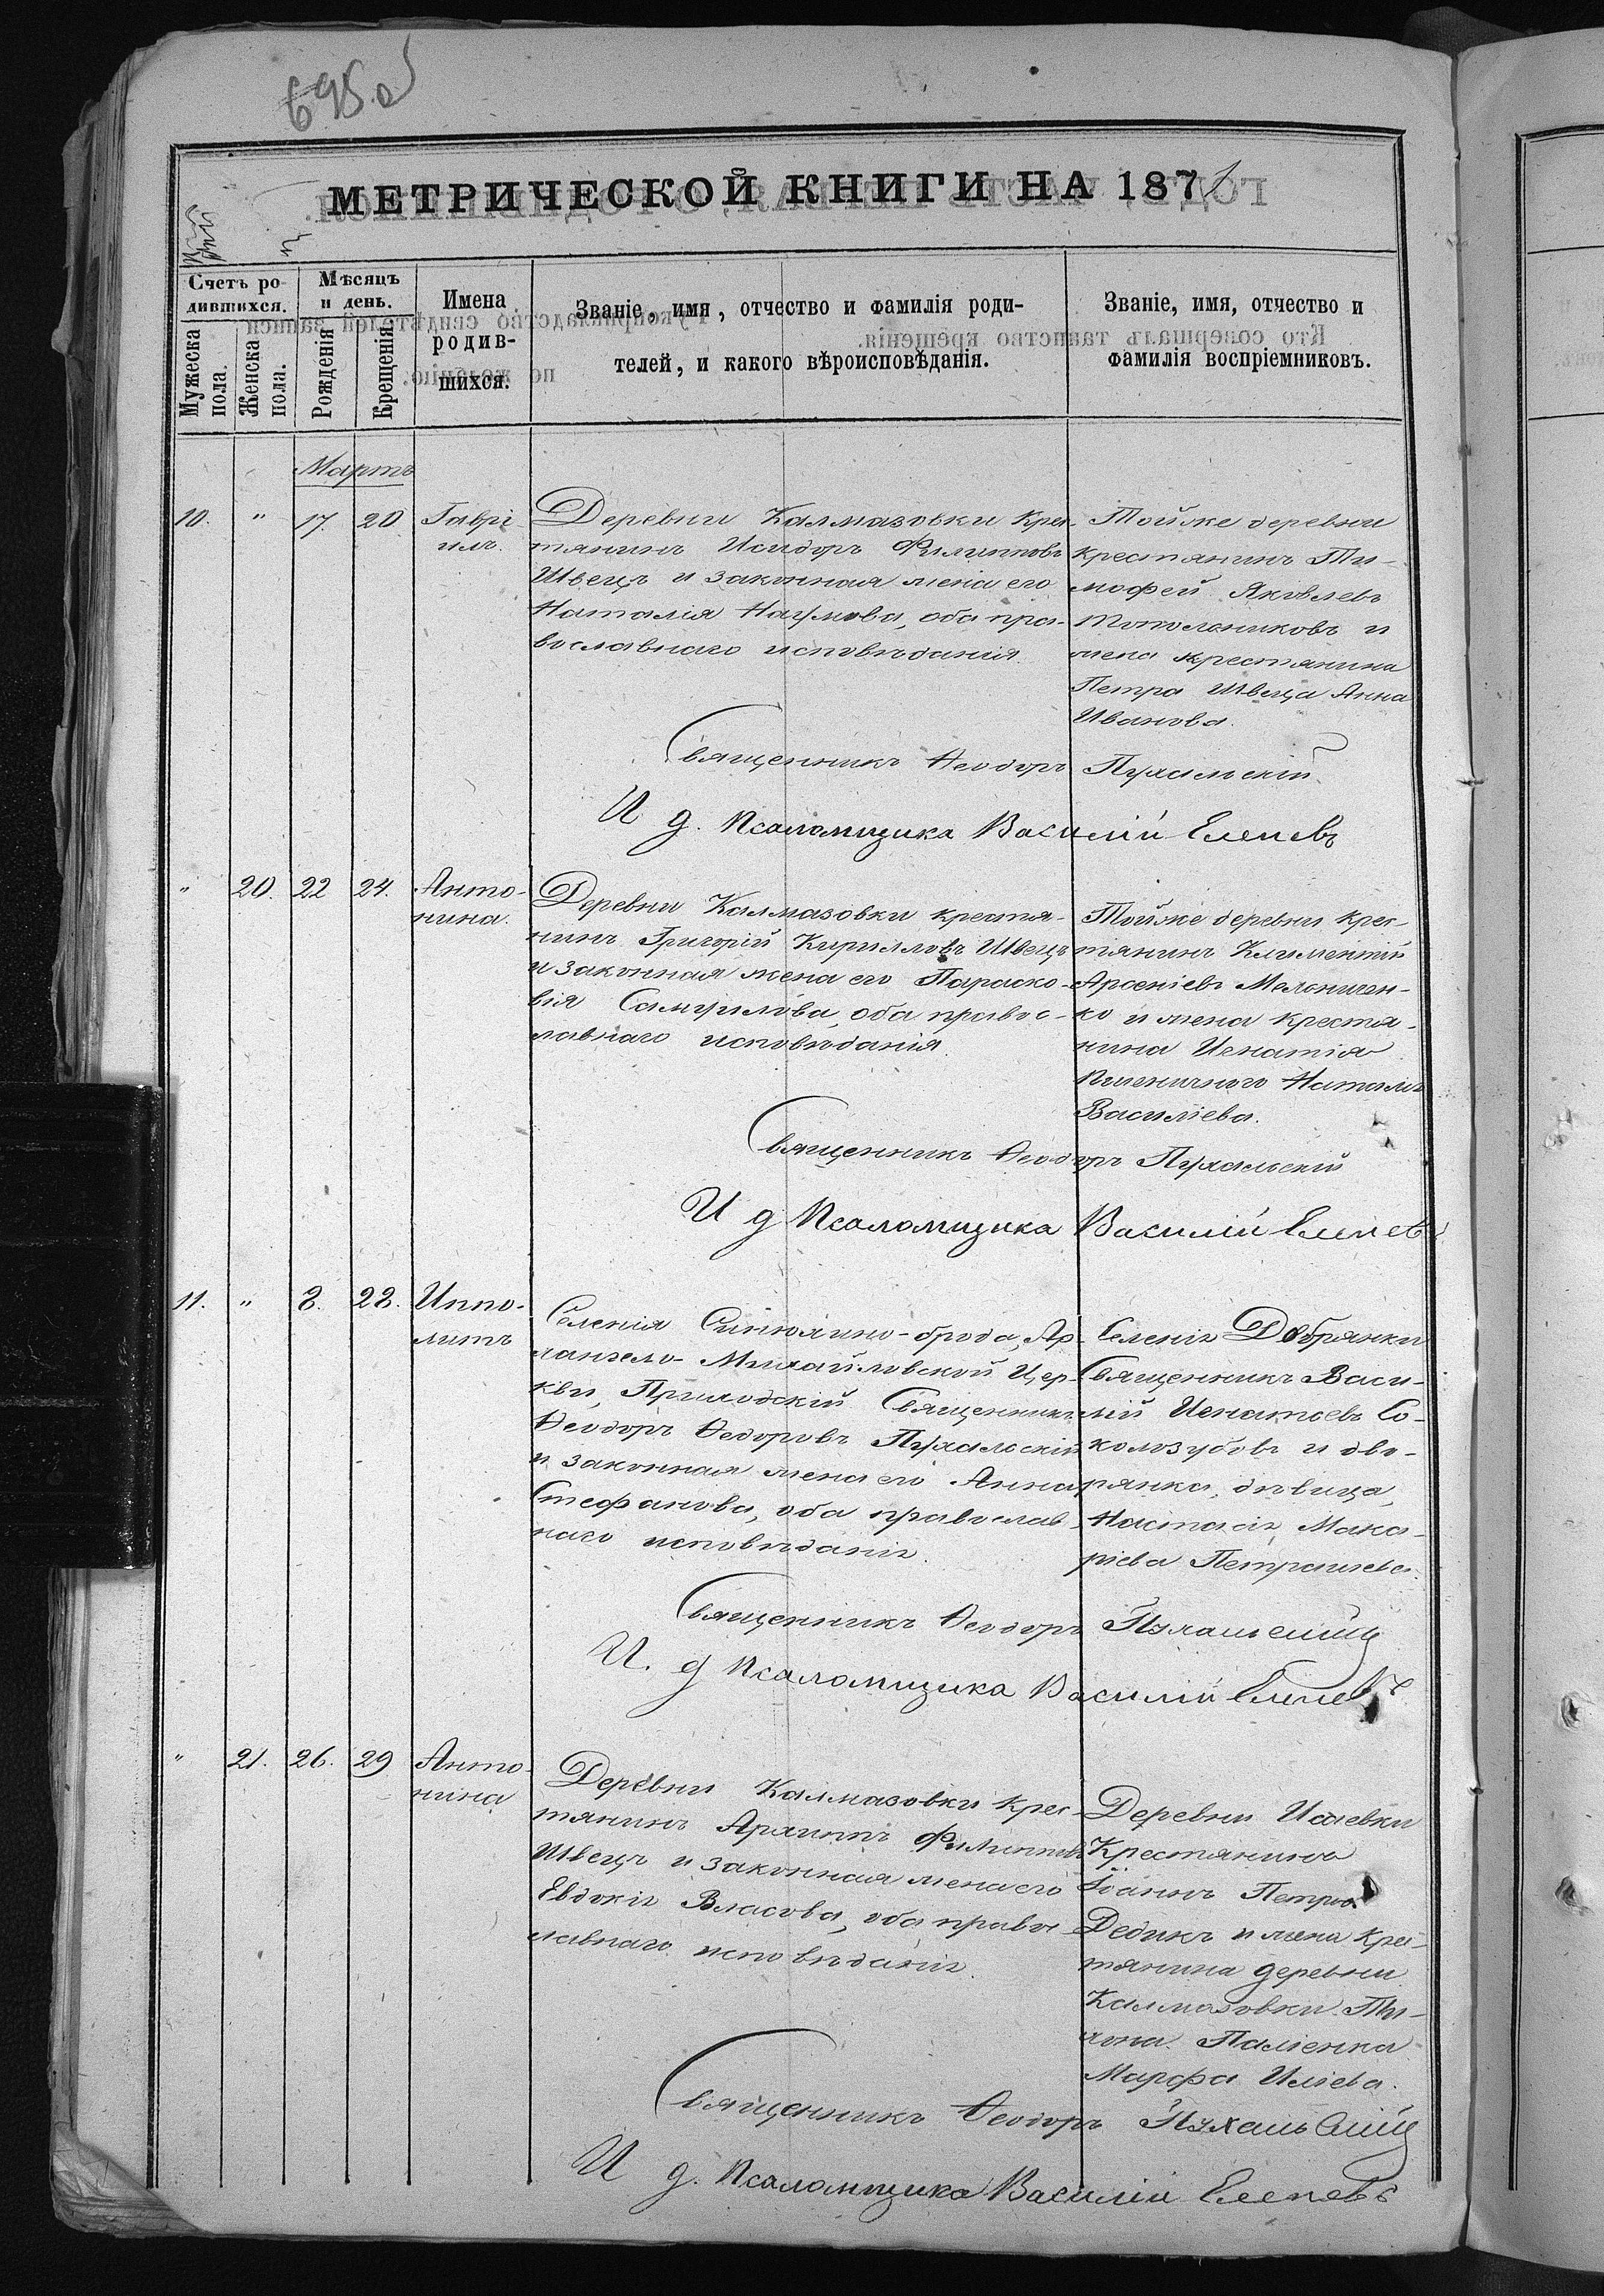 695 об
МЕТРИЧЕСКОЙ КНИГИ НА 1871
Счетъ ро-
дившихся.
Мужеска
пола.
Женска
пола.
Мѣсяцъ
и день.
Рожденія
Крещенія.
Имена
родив-
шихся.
Званіе, имя, отчество и фамилія роди-
телей, и какого вѣроисповѣданія.
Званіе, имя, отчество и
фамилія воспріемниковъ.
Мартъ
10. " 17. 20 Гаврі-
илъ.
Деревни Калмазовки крес-
тянинъ Исидоръ Филиповъ
Швецъ и законная жена его
Наталія Наумова, оба пра-
вославнаго исповѣданія.
Тойже деревни
крестянинъ Ти-
мофей Яковлевъ
и
жена крестянина
Петра Швеца Анна
Иванова.
Священникъ Ѳеодоръ Пухальскій.
И д. Псаломщика Василій
" 20. 22 24. Анто-
нина.
Деревни Калмазовки крестя-
нинъ Григорій Кирилловъ Швецъ
и законная жена его Параско-
вія Самуилова, оба правос-
лавнаго исповѣданія.
Тойже деревни крес-
тянинъ Климентій
Арсеніевъ Мельничен-
ко и жена крестя-
нина Игнатія
Пшеничнаго Наталія
Василіева.
Священникъ Ѳеодоръ Пухальскій
И д Псаломщика Василій
11. " 8. 28. Иппо-
литъ
Селенія Синюхино-брода, Ар-
хангело-Михайловской Цер-
кви, Приходскій Священникъ
Ѳеодоръ Ѳедоровъ Пухальскій
и законная жена его Анна
Стефанова, оба православ-
наго исповѣданія.
Селенія Добрянки
Священникъ Васи-
лій Игнатовъ Со-
колозубовъ и дво-
рянка, дѣвица,
Настасія Мака-
ріева Петрашева.
Священникъ Ѳеодоръ Пухальскій
И. д Псаломщика Василій
" 21. 26. 29 Анто-
нина
Деревни Калмазовки крес-
тянинъ Архипъ Филиповъ
Швецъ и законная жена его
Евдокія Власова, оба правос-
лавнаго исповѣданія.
Деревни Исаевки
Крестянинъ
Іоаннъ Петровъ
Дедикъ и жена крес-
тянина деревни
Калмазовки Ти-
хона Паліенка
Марфа Иліева.
Священникъ Ѳеодоръ Пухальскій
И д. Псаломщика Василій